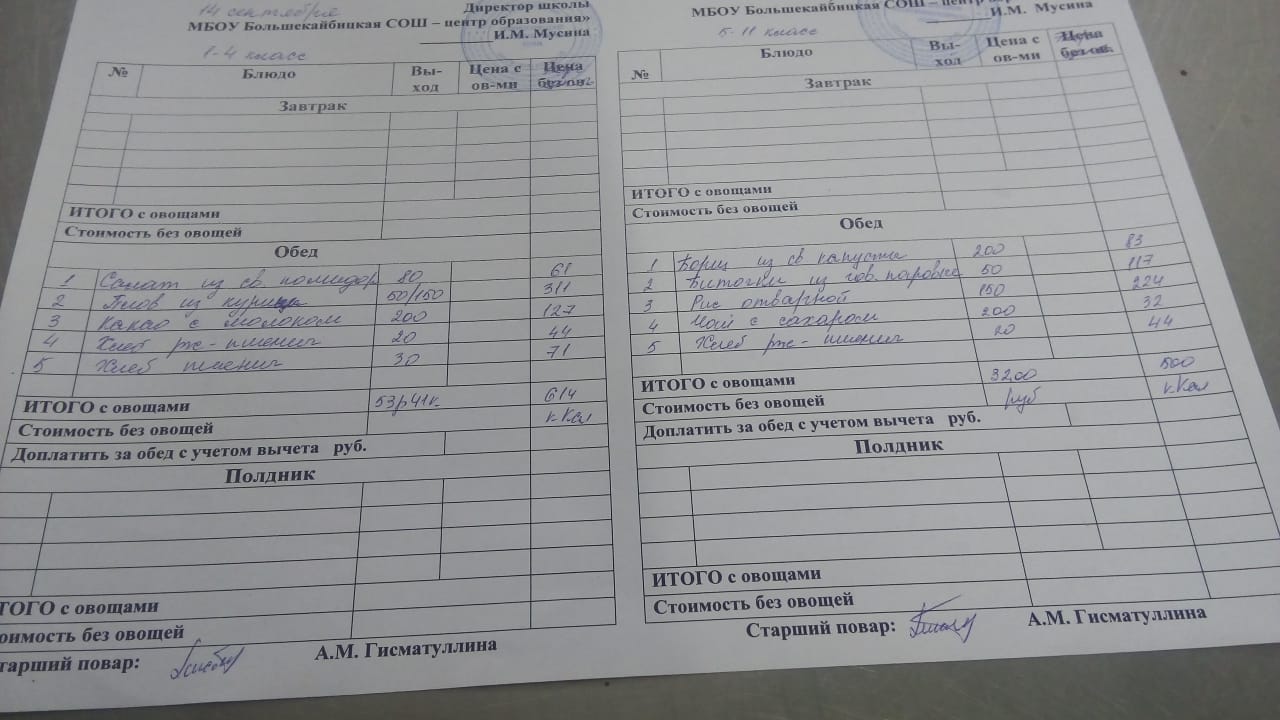 14 сентября
Директор школы
МБОУ Большекайбицкая СОШ – центр образования»
И.М. Мусина
1-4 класс
№ Блюдо Вы-ход Цена с ов-ми Цена без ов.
Завтрак
ИТОГО с овощами
Стоимость без овощей
Обед
1 Салат из св. помидор 80 61
2 Плов из курицы 50/150 311
3 Какао с молоком 200 127
4 Хлеб рж-пшенич 20 44
5 Хлеб пшенич 30 71
ИТОГО с овощами 53р41к. 614
Стоимость без овощей кКал
Доплатить за обед с учетом вычета руб.
Полдник
ТОГО с овощами
оимость без овощей
тарший повар: А.М. Гисматуллина
МБОУ Большекайбицкая СОШ – центр
И.М. Мусина
5-11 класс
№ Блюдо Вы-ход Цена с ов-ми Цена без ов.
Завтрак
ИТОГО с овощами
Стоимость без овощей
Обед
1 Борщ из св капусты 200 83
2 Биточки из гов. паровые 50 117
3 Рис отварной 150 224
4 Чай с сахаром 200 32
5 Хлеб рж-пшенич 20 44
ИТОГО с овощами 3200 500
Стоимость без овощей руб кКал
Доплатить за обед с учетом вычета руб.
Полдник
ИТОГО с овощами
Стоимость без овощей
Старший повар: А.М. Гисматуллина